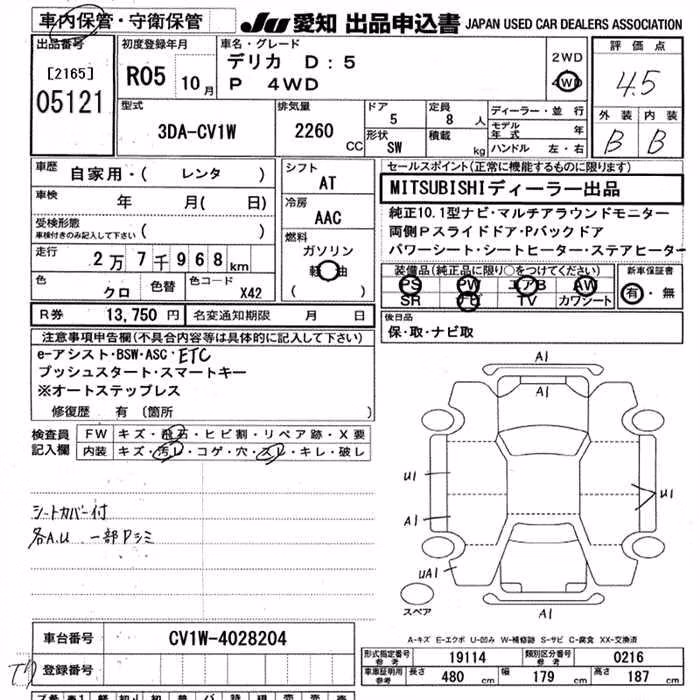 車内保管・守衛保管
JU 愛知 出品申込書 JAPAN USED CAR DEALERS ASSOCIATION
出品番号
[2165]
05121
初度登録年月
R05 10月
車名・グレード
デリカ D:5
P 4WD
2WD
4WD
評価点
4.5
外装 内装
B B
型式
3DA-CV1W
排気量
2260 CC
ドア
5
定員
8 人
形状
SW
積載
kg
ディーラー・並行
モデル年式 年
ハンドル 左・右
車歴
自家用・( レンタ )
車検
年 月( 日)
受検形態
車検付きのみ記入して下さい ( )
走行
2万7千968km
色
クロ
色替
色コード
X42
シフト
AT
冷房
AAC
燃料
ガソリン
軽油
( )
セールスポイント(正常に機能するものに限ります)
MITSUBISHIディーラー出品
純正10.1型ナビ・マルチアラウンドモニター
両側Pスライドドア・Pバックドア
パワーシート・シートヒーター・ステアヒーター
装備品(純正品に限り○をつけてください)
PS PW エアB AW
SR ナビ TV カワシート
新車保証書
有・無
R券 13,750円 名変通知期限 月 日
後日品
保・取・ナビ取
注意事項申告欄(不具合内容等は具体的に記入して下さい)
e-アシスト・BSW・ASC・ETC
プッシュスタート・スマートキー
※オートステップレス
修復歴 有(箇所 )
検査員
記入欄
FW キズ・飛石・ヒビ割・リペア跡・X要
内装 キズ・汚レ・コゲ・穴・スレ・キレ・破レ
シートカバー付
各A.U 一部Pシミ
A1
A1
U1
A1
UA1
U1
A1
スペア
A-キズ E-エクボ U-凹み W-補修跡 S-サビ C-腐食 XX-交換済
車台番号 CV1W-4028204
登録番号
型式指定番号
参考
19114
類別区分番号
参考
0216
車庫証明用
参考
長さ 480 cm 幅 179 cm 高さ 187 cm